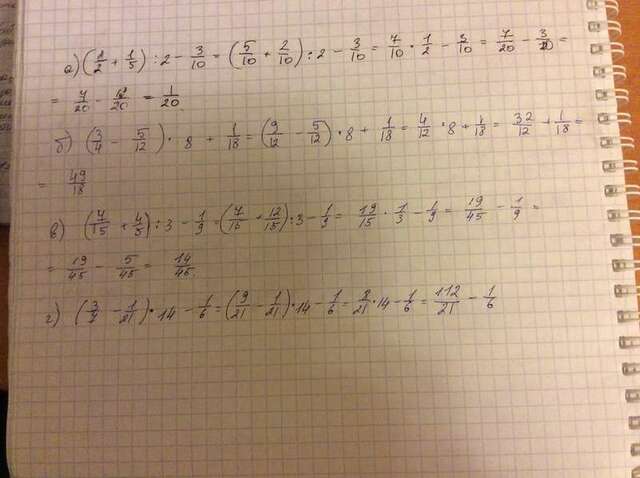 а) (2/2 + 1/5) : 2 − 3/10 = (5/10 + 2/10) : 2 − 3/10 = 7/10 · 1/2 − 3/10 = 7/20 − 3/10 =
= 7/20 − 6/20 = 1/20.
б) (3/4 − 5/12) · 8 + 1/18 = (9/12 − 5/12) · 8 + 1/18 = 4/12 · 8 + 1/18 = 32/12 + 1/18 =
= 49/18
в) (7/15 + 4/5) : 3 − 1/9 = (7/15 + 12/15) : 3 − 1/9 = 19/15 · 1/3 − 1/9 = 19/45 − 1/9 =
= 19/45 − 5/45 = 14/45.
г) (3/7 − 1/21) · 14 − 1/6 = (9/21 − 1/21) · 14 − 1/6 = 8/21 · 14 − 1/6 = 112/21 − 1/6